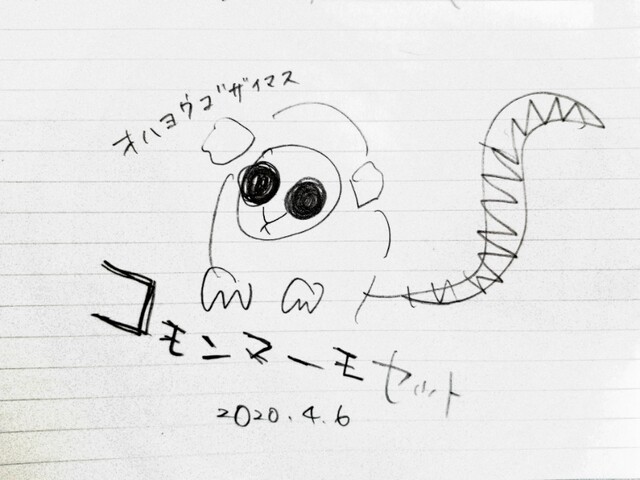 オハヨウゴザイマス
コモンマーモセット
2020.4.6